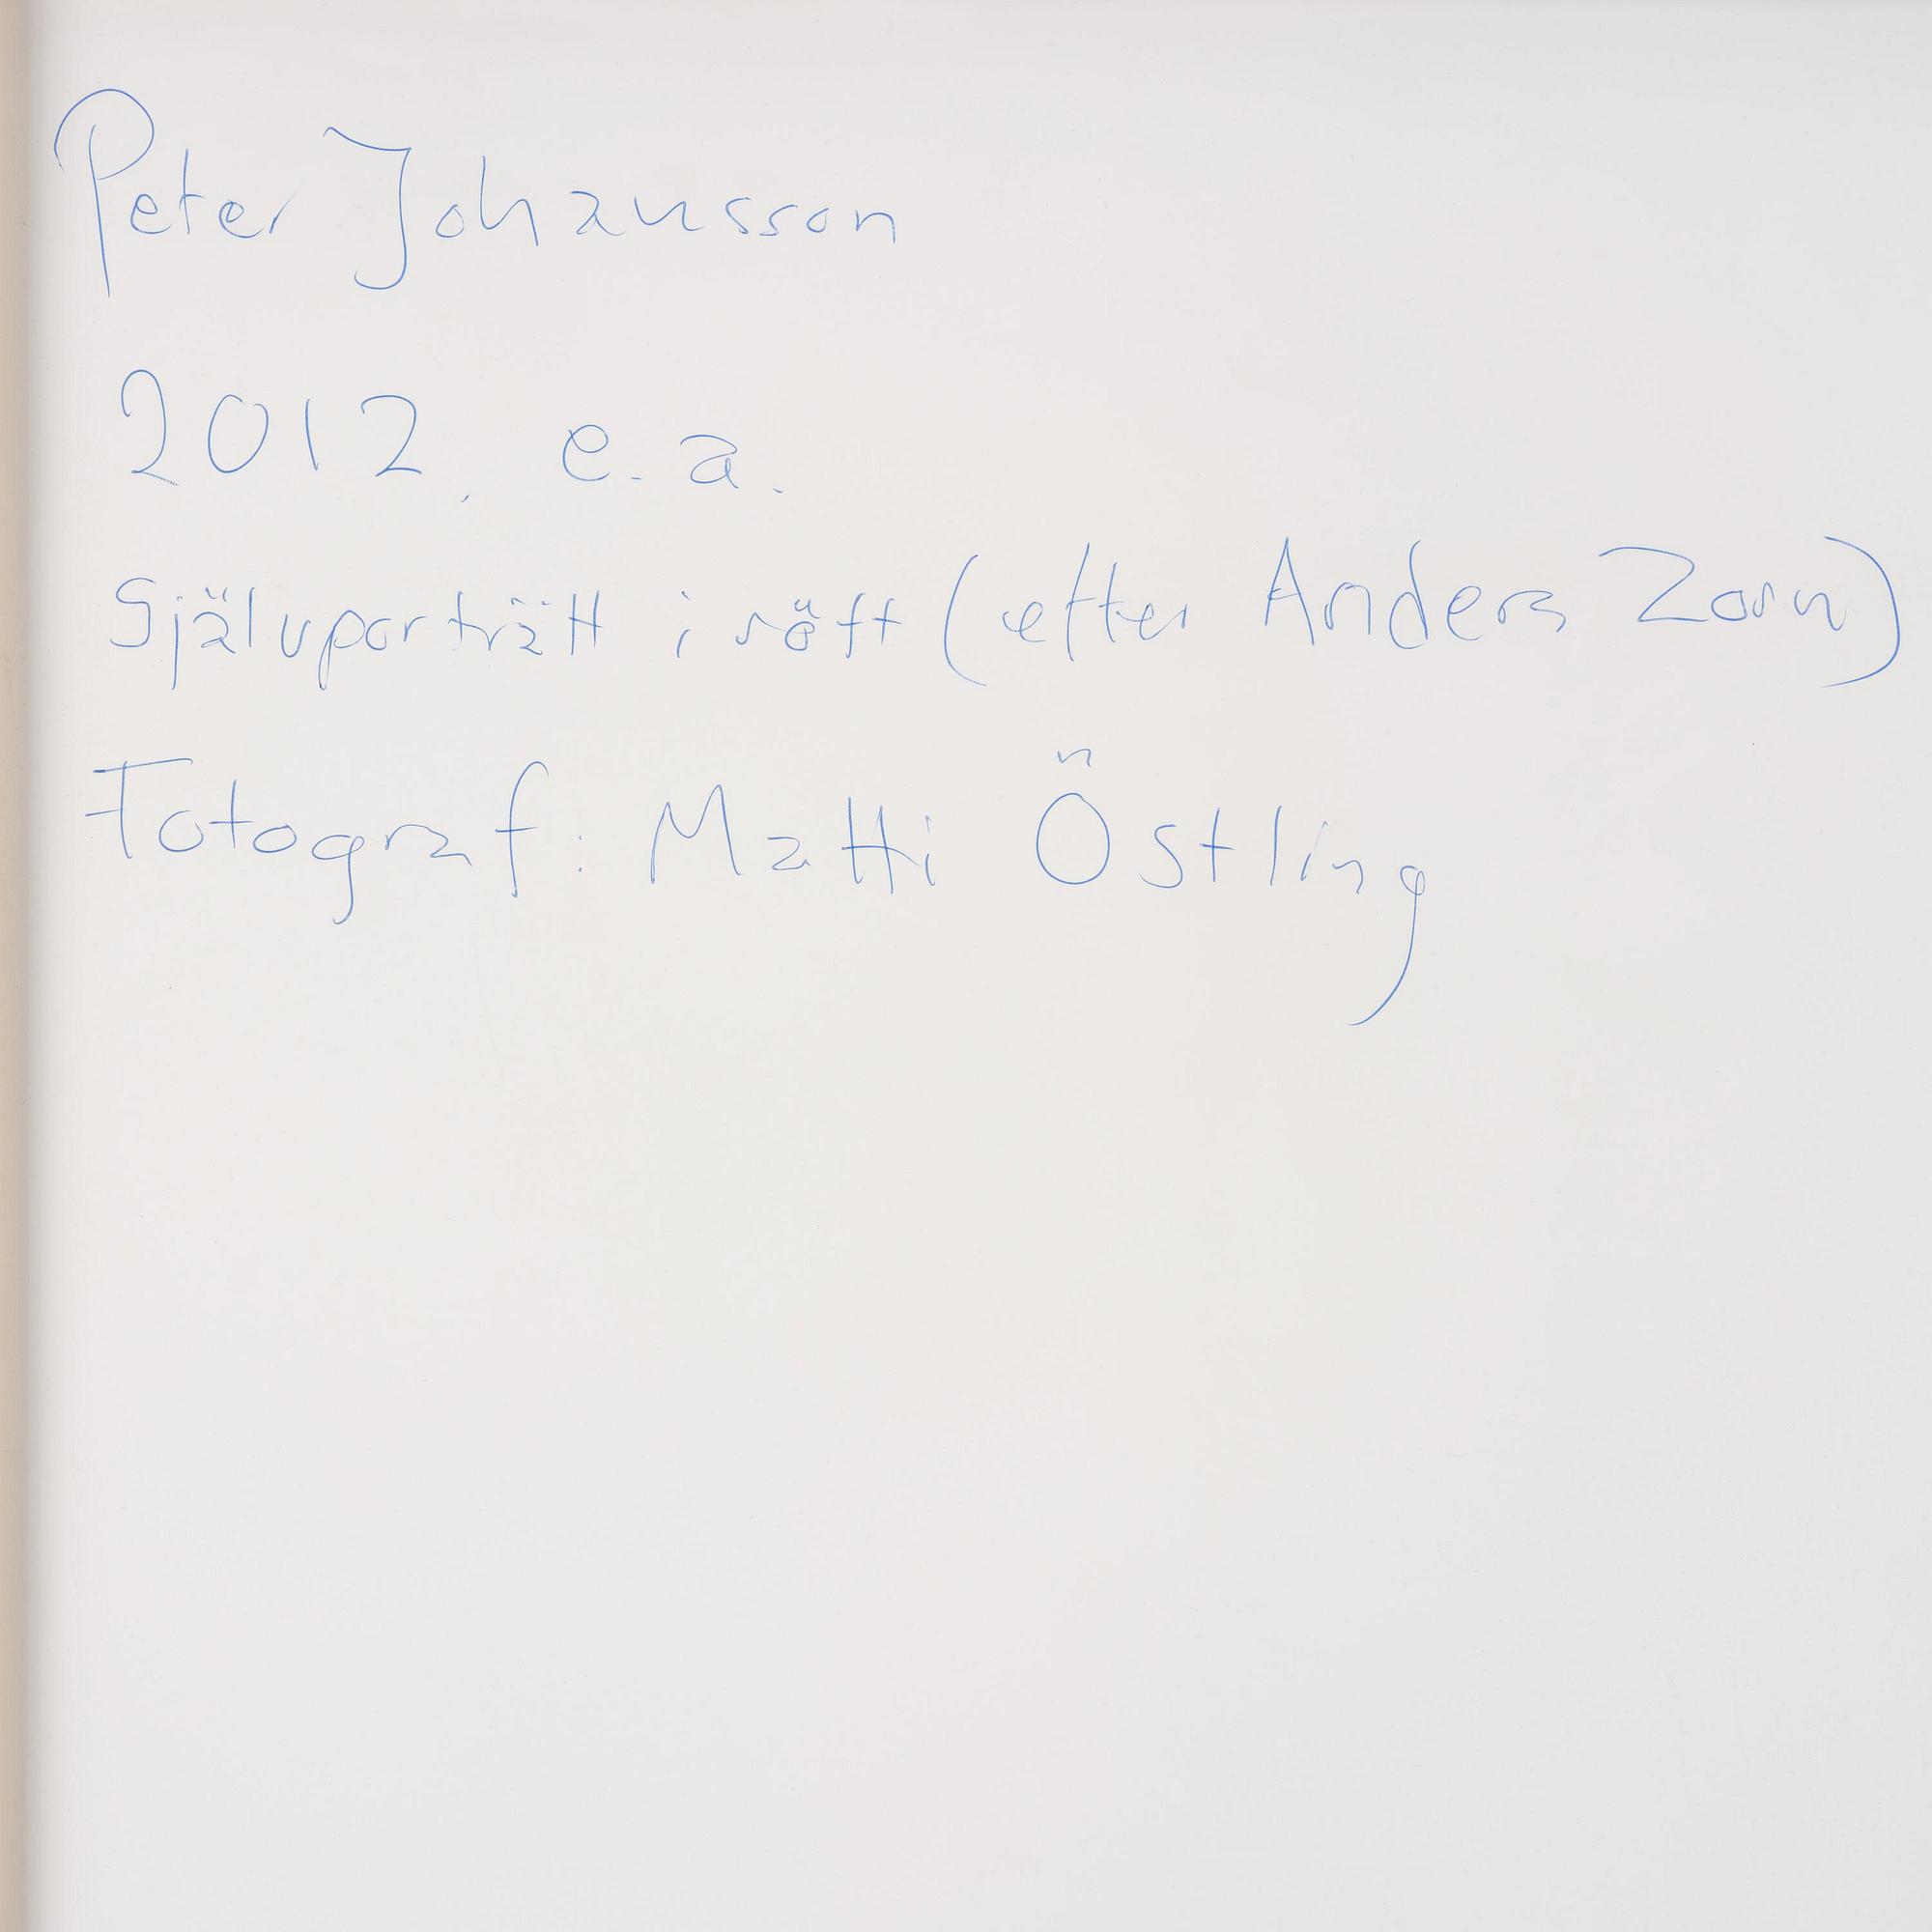 Peter Johansson
2012, e.a.
Självporträtt i rött (efter Anders Zorn)
Fotograf: Matti Östling